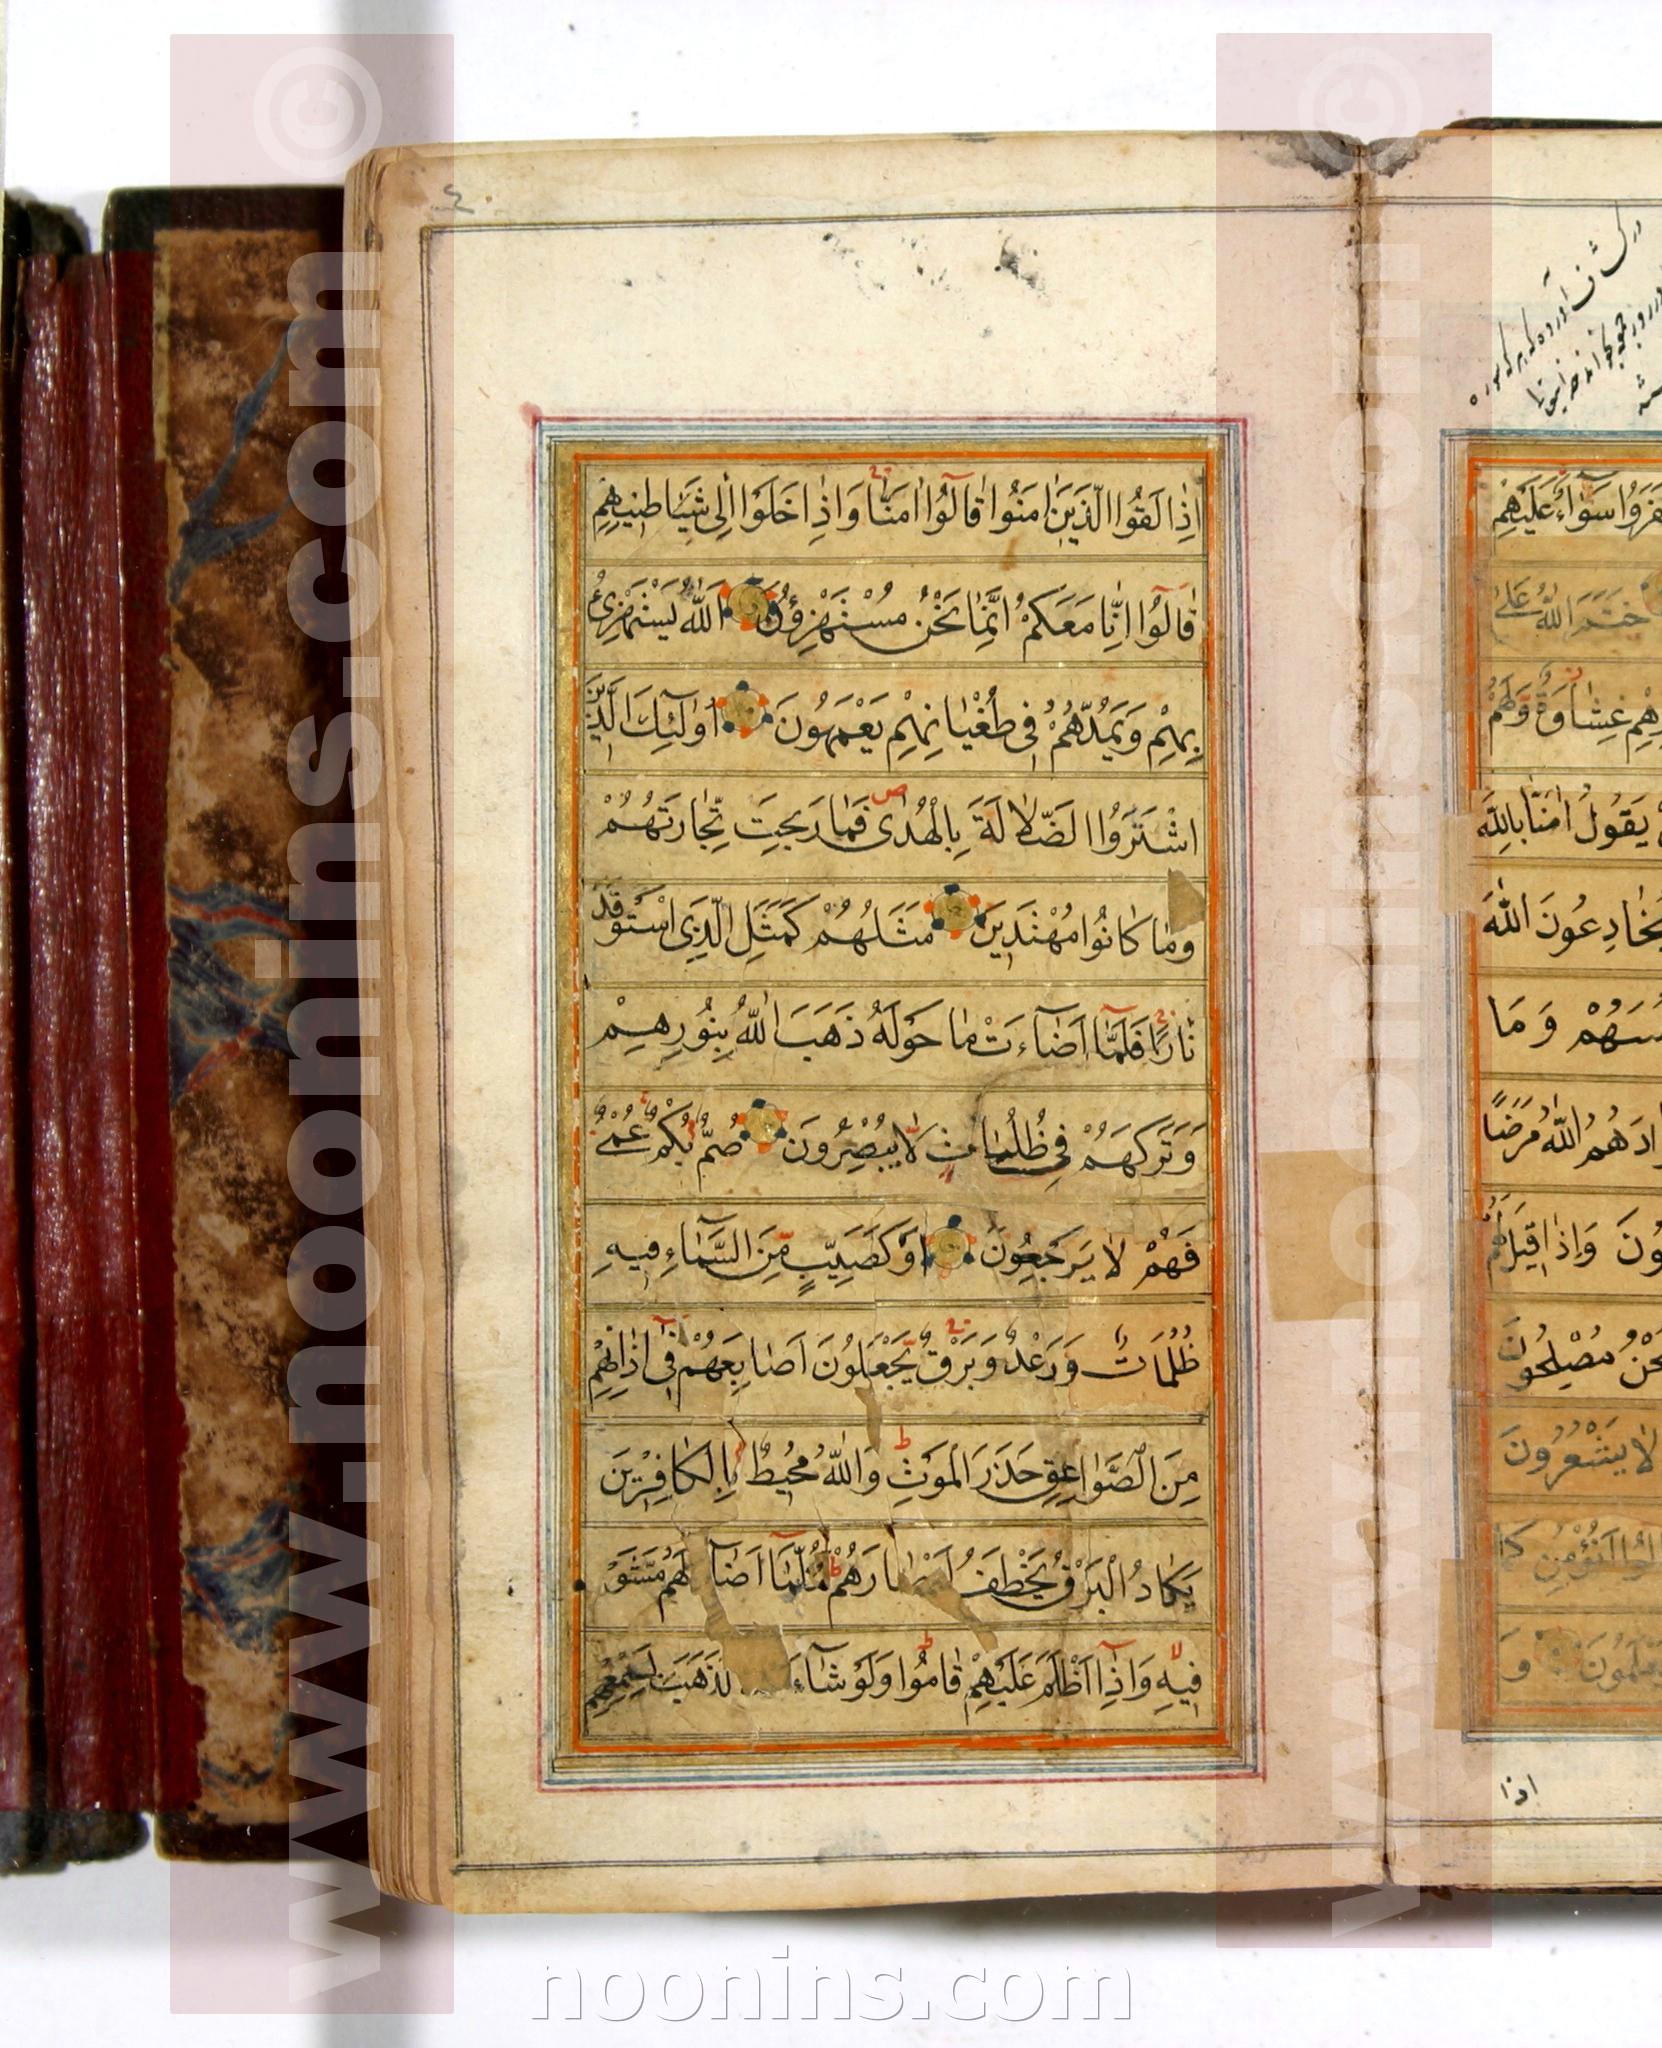 ٤
اِذٰا لَقُوا الَّذينَ اٰمَنُوا قٰالُوٓا اٰمَنّٰا وَاِذٰا خَلَوْا اِلىٰ شَيٰاطينِهِمْ
قٰالُوٓا اِنّٰا مَعَكُمْ اِنَّمٰا نَحْنُ مُسْتَهْزِؤُنَ اَللّٰهُ يَسْتَهْزِئُ
بِهِمْ وَيَمُدُّهُمْ في طُغْيٰانِهِمْ يَعْمَهُونَ اُولٰٓئِكَ الَّذينَ
اشْتَرَوُا الضَّلٰالَةَ بِالْهُدىٰ ص فَمٰا رَبِحَتْ تِجٰارَتُهُمْ
وَمٰا كٰانُوا مُهْتَدينَ مَثَلُهُمْ كَمَثَلِ الَّذِي اسْتَوْقَدَ
نٰارًا فَلَمّٰٓا اَضٰٓاءَتْ مٰا حَوْلَهُ ذَهَبَ اللّٰهُ بِنُورِهِمْ
وَتَرَكَهُمْ في ظُلُمٰاتٍ لٰا يُبْصِرُونَ صُمٌّ بُكْمٌ عُمْيٌ
فَهُمْ لٰا يَرْجِعُونَ اَوْ كَصَيِّبٍ مِنَ السَّمٰٓاءِ فيهِ
ظُلُمٰاتٌ وَرَعْدٌ وَبَرْقٌ يَجْعَلُونَ اَصٰابِعَهُمْ في اٰذٰانِهِمْ
مِنَ الصَّوٰاعِقِ حَذَرَ الْمَوْتِ ط وَاللّٰهُ مُحيطٌ بِالْكٰافِرينَ
يَكٰادُ الْبَرْقُ يَخْطَفُ اَبْصٰارَهُمْ ط كُلَّمٰٓا اَضٰٓا لَهُمْ مَشَوْا
فيهِ وَاِذٰٓا اَظْلَمَ عَلَيْهِمْ قٰامُوا ط وَلَوْ شٰٓاءَ لَذَهَبَ بِسَمْعِهِمْ
كَفَرُوا سَوٰٓاءٌ عَلَيْهِمْ
خَتَمَ اللّٰهُ عَلىٰ
غِشٰاوَةٌ وَلَهُمْ
يَقُولُ اٰمَنّٰا بِاللّٰهِ
يُخٰادِعُونَ اللّٰهَ
وَمٰا
اللّٰهُ مَرَضًا
وَاِذٰا قيلَ لَهُمْ
نَحْنُ مُصْلِحُونَ
لٰا يَشْعُرُونَ
قٰالُوٓا اَنُؤْمِنُ كَمٰا
وَ
اذا
www.noonins.com ©
www.noonins.com ©
noonins.com